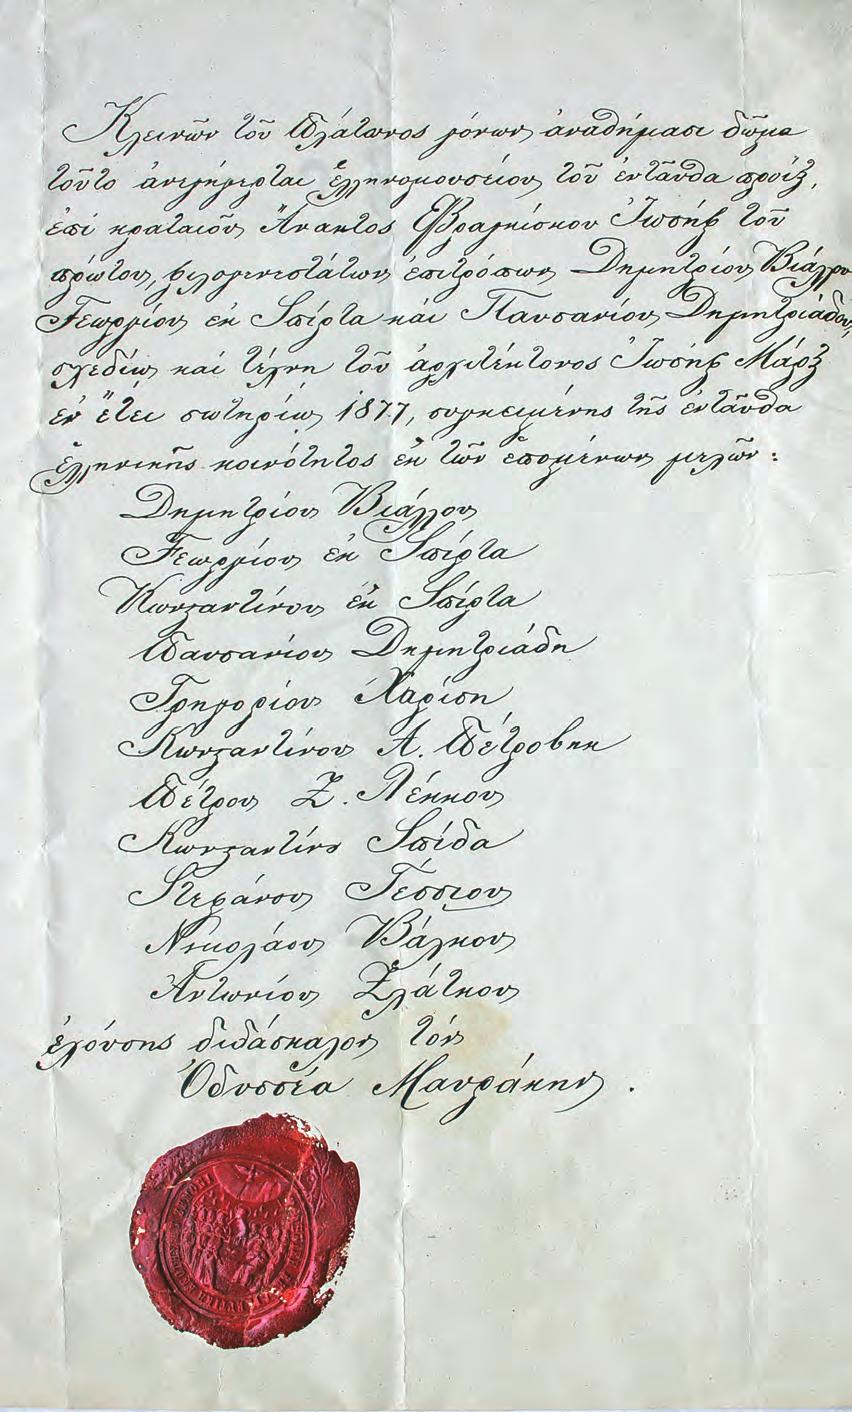 Κλεινῶν τοῦ Πλάτωνος γόνων ἀναθήμασι δῶμα
τοῦτο ἀνεγήγερται ἑλληνομουσείον τοῦ ἐνταῦθα προίξ,
ἐπί κραταιοῦ Ἄνακτος Φραγκίσκου Ἰωσήφ τοῦ
πρώτου, φιλογενεστάτων ἐπιτρόπων Δημητρίου Βιάλλου
Γεωργίου ἐκ Σπίρτα καί Παυσανίου Δημητριάδου,
σχεδίῳ καί τέχνῃ τοῦ ἀρχιτέκτονος Ἰωσήφ Μάρξ
ἐν ἔτει σωτηρίῳ 1877, συγκειμένης τῆς ἐνταῦθα
ἑλληνικῆς κοινότητος ἐκ τῶν ἑπομένων μελῶν:
Δημητρίου Βιάλλου
Γεωργίου ἐκ Σπίρτα
Κωνσταντίνου ἐκ Σπίρτα
Παυσανίου Δημητριάδη
Γρηγορίου Χαρίση
Κωνσταντίνου Α. Πέτροβηκ
Πέτρου Ζ. Λέκκου
Κωνσταντίνου Σπίδα
Στεφάνου Γέσσιου
Νικολάου Βάλκου
Ἀντωνίου Ζλάτκου
ἑλούσης διδάσκαλον τόν
Ὀδυσσέα Μαυράκην.